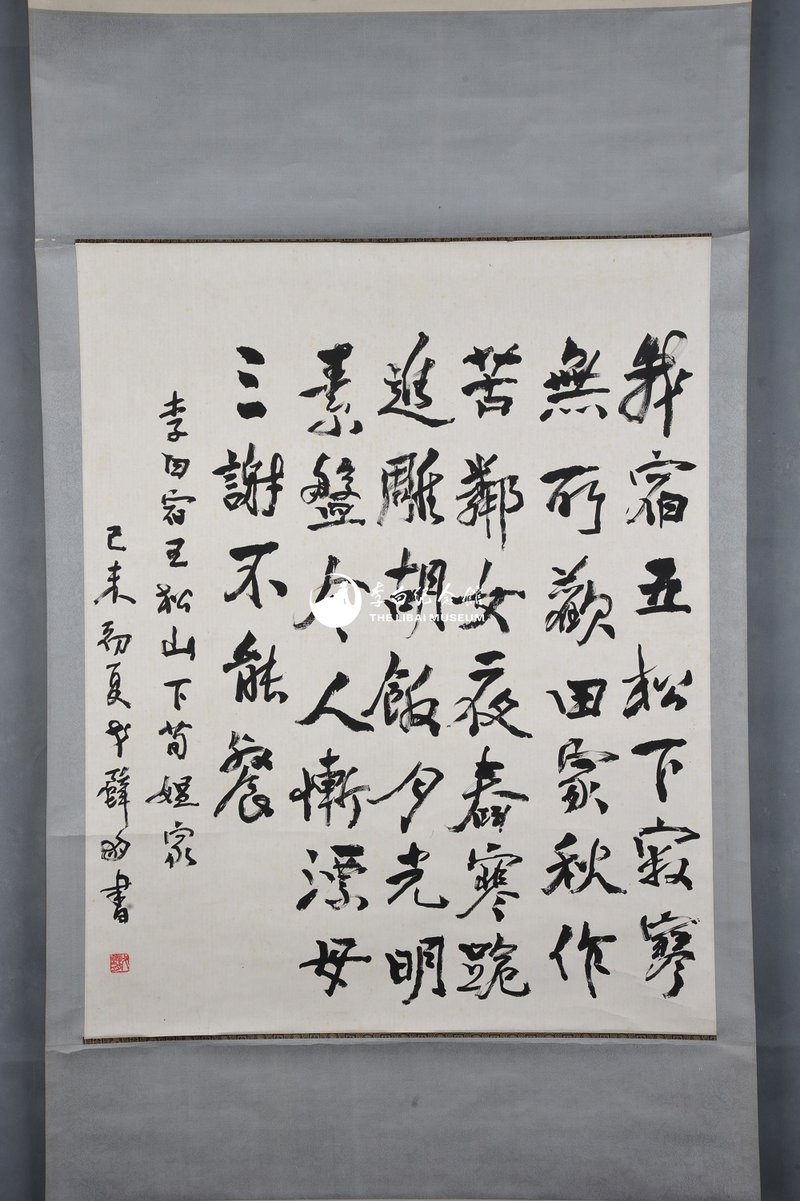 我宿五松下寂寥
無所歡田家秋作
苦鄰女夜舂寒跪
進雕胡飯月光明
素盤令人慚漂母
三謝不能餐
李白宿五松山下荀媼家
己未初夏 書
李白纪念馆
THE LIBAI MUSEUM